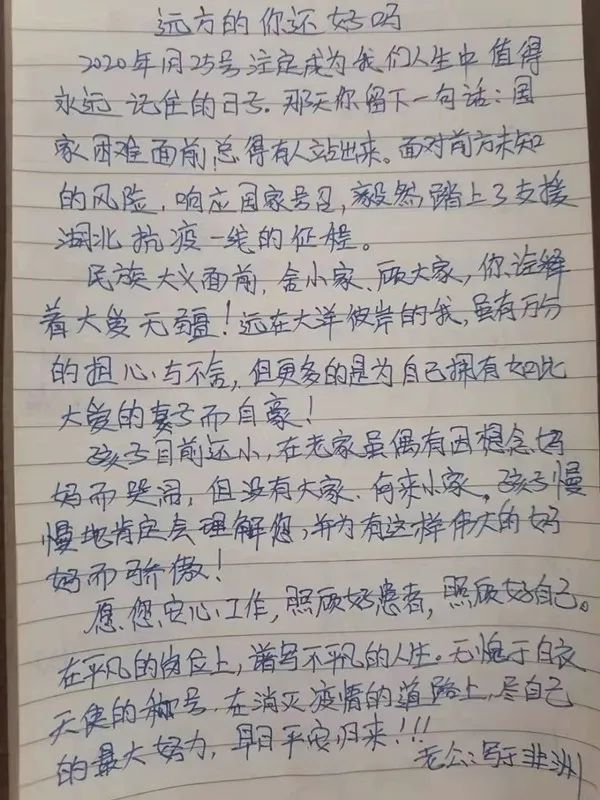 远方的你还好吗
2020年1月25号注定成为我们人生中值得
永远记住的日号.那天你留下一句话:国
家困难面前,总得有人站出来。面对前方未知
的风险,响应国家号召,毅然踏上了支援
湖北抗疫一线的征程。
民族大义面前,舍小家、顾大家,你诠释
着大爱无疆!远在大洋彼岸的我,虽有万分
的担心与不舍,但更多的是为自己拥有如此
大爱的妻子而自豪!
孩子目前还小,在老家虽偶有因想念妈
妈而哭闹,但没有大家、何来小家。孩子慢
慢地肯定会理解您,并为有这样伟大的妈
妈而骄傲!
愿您安心工作,照顾好患者,照顾好自己。
在平凡的岗位上,谱写不平凡的人生。无愧于白衣
天使的称号.在消灭疫情的道路上,尽自己
的最大努力,早日平安归来!!!
老公:写于非洲